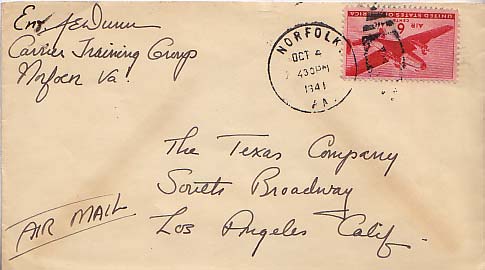 Ens. J E H Dunn
Carrier Training Group
Norfolk Va.
NORFOLK
OCT 4
430 PM
1941
VA.
UNITED STATES OF AMERICA
6 CENTS
AIR
The Texas Company
South Broadway
Los Angeles Calif.
AIR MAIL